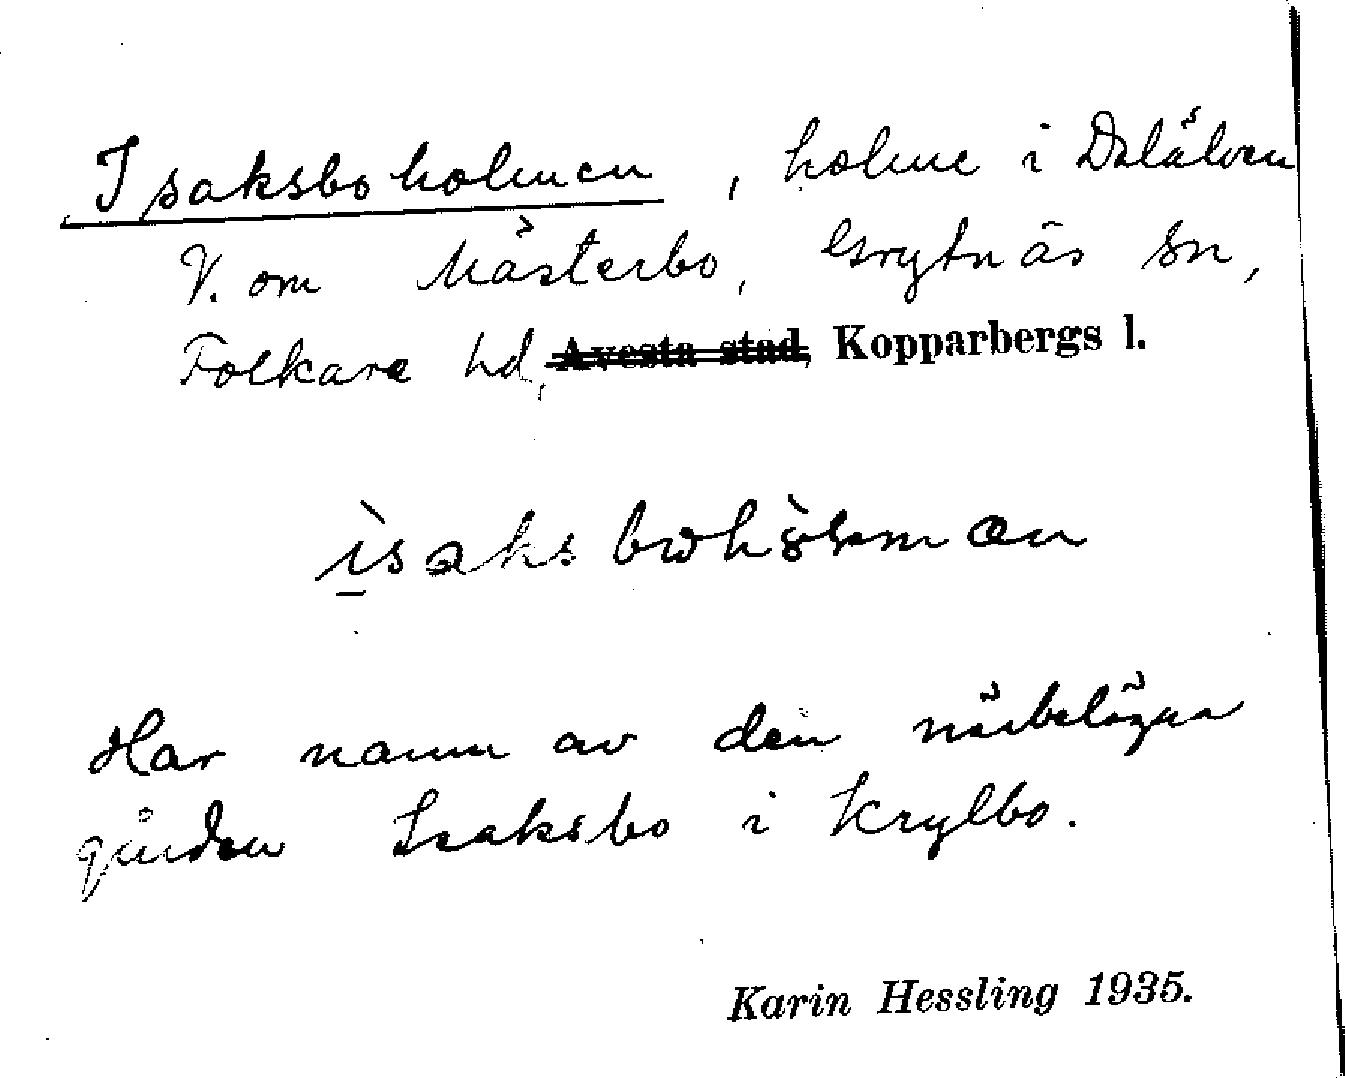 Isaksboholmen, holme i Dalälven
V. om Mästerbo, Grytnäs sn,
Folkare hd, Avesta stad, Kopparbergs l.
Har namn av den närbelägna
gården Isaksbo i Krylbo.
Karin Hessling 1935.